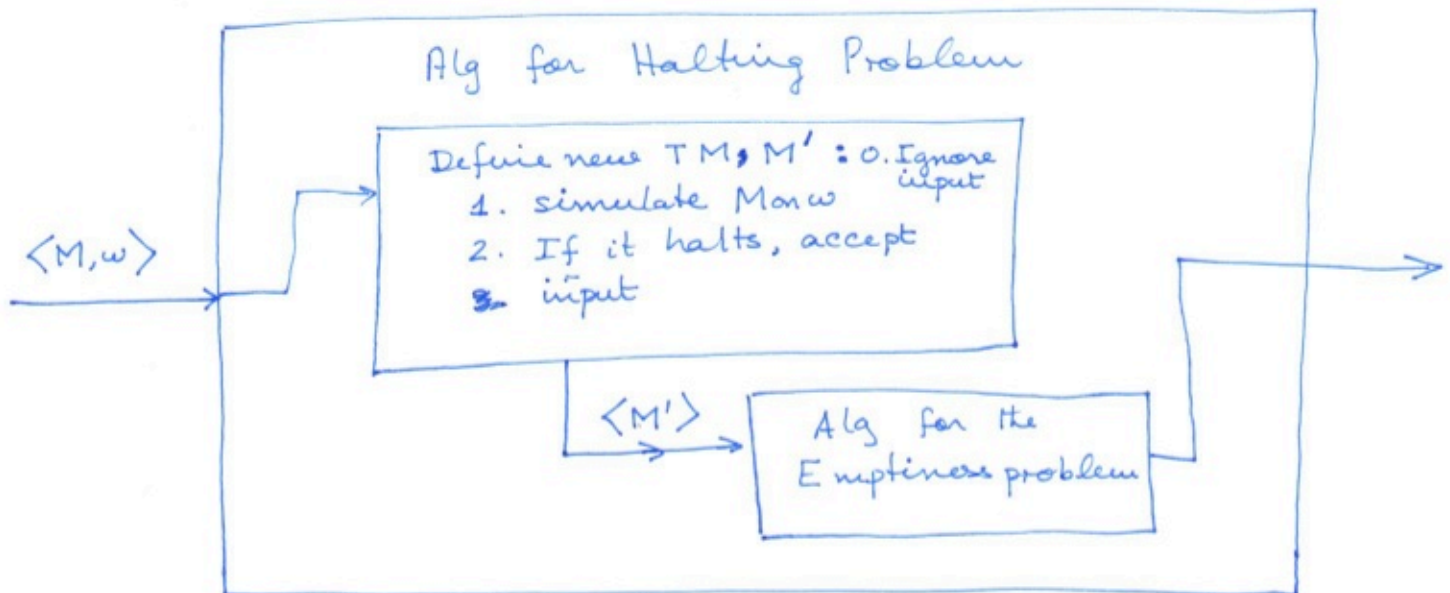 Alg for Halting Problem
Define new TM, M' : 0. Ignore
input
1. simulate M on w
2. If it halts, accept
3. input
⟨M,w⟩
⟨M'⟩
Alg for the
Emptiness problem